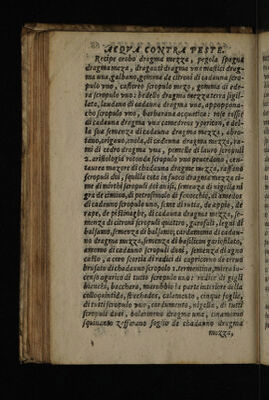 ACQVA CONTRA PESTE.
Recipe orobo dragma mezza, pegola spagna
dragma meza, draganti dragma vna mastici drag-
ma vna, galbano, gomma de citroni di cadauna scro
pulo vno, castoreo scropulo mezo, gomma di ede-
ra scropulo vno: bedelio dragma mezza terra sigil
lata, laudano di cadauna dragma vna, appopona-
cho scropulo vno, barbarana acquatica:
di cadauna dragma vna camedreos y pericon, e del-
la sua semenza di cadauna dragma mezza, abro-
tano, origano, viola, di cadauna dragma mezza, ra-
mi di cedro dragma vna, pomelle di lauro scropuli
2. aristologia rotonda scropulo vno peucedano, cen-
taurea mazore di chadauna dragma mezza, rafano
scropuli doi, squilla cota in fuoco dragma mezza so-
me di mirthi scropuli doi anisi, semenza di nigella ni
gra de cimino, di petrosimolo di fenocchio, di amos
di cadauno scropulo vno, seme di rutta, de appio, de
rape, de pistinaghe, di cadauna dragma mezza, se-
menza di citroni scropuli quattro, garofali, legni di
balsamo, semenza di balsamo, cardamomo di cadau-
no dragma mezza, semenza di basilicon gariofilato,
anremo di cadauno scropuli doni, semenza di agno
casto, a cero scorcia di radici di capricorno de ceruo
brusato di chadauno scropulo 1. termentina, mirra in-
censo agarico di tutto scropulo vno: radice di gigli
bianchi, bacchara, marobbio la parte interiore della
colloquintida, stechados, calamento, cinque foglie,
di tutti scropulo vno, cardumento, nigella, di tutti
scropuli doni, boloarmeno dragma vna, cinamomo
squinanto zafferano foglio de chadauno dragma
mezza,